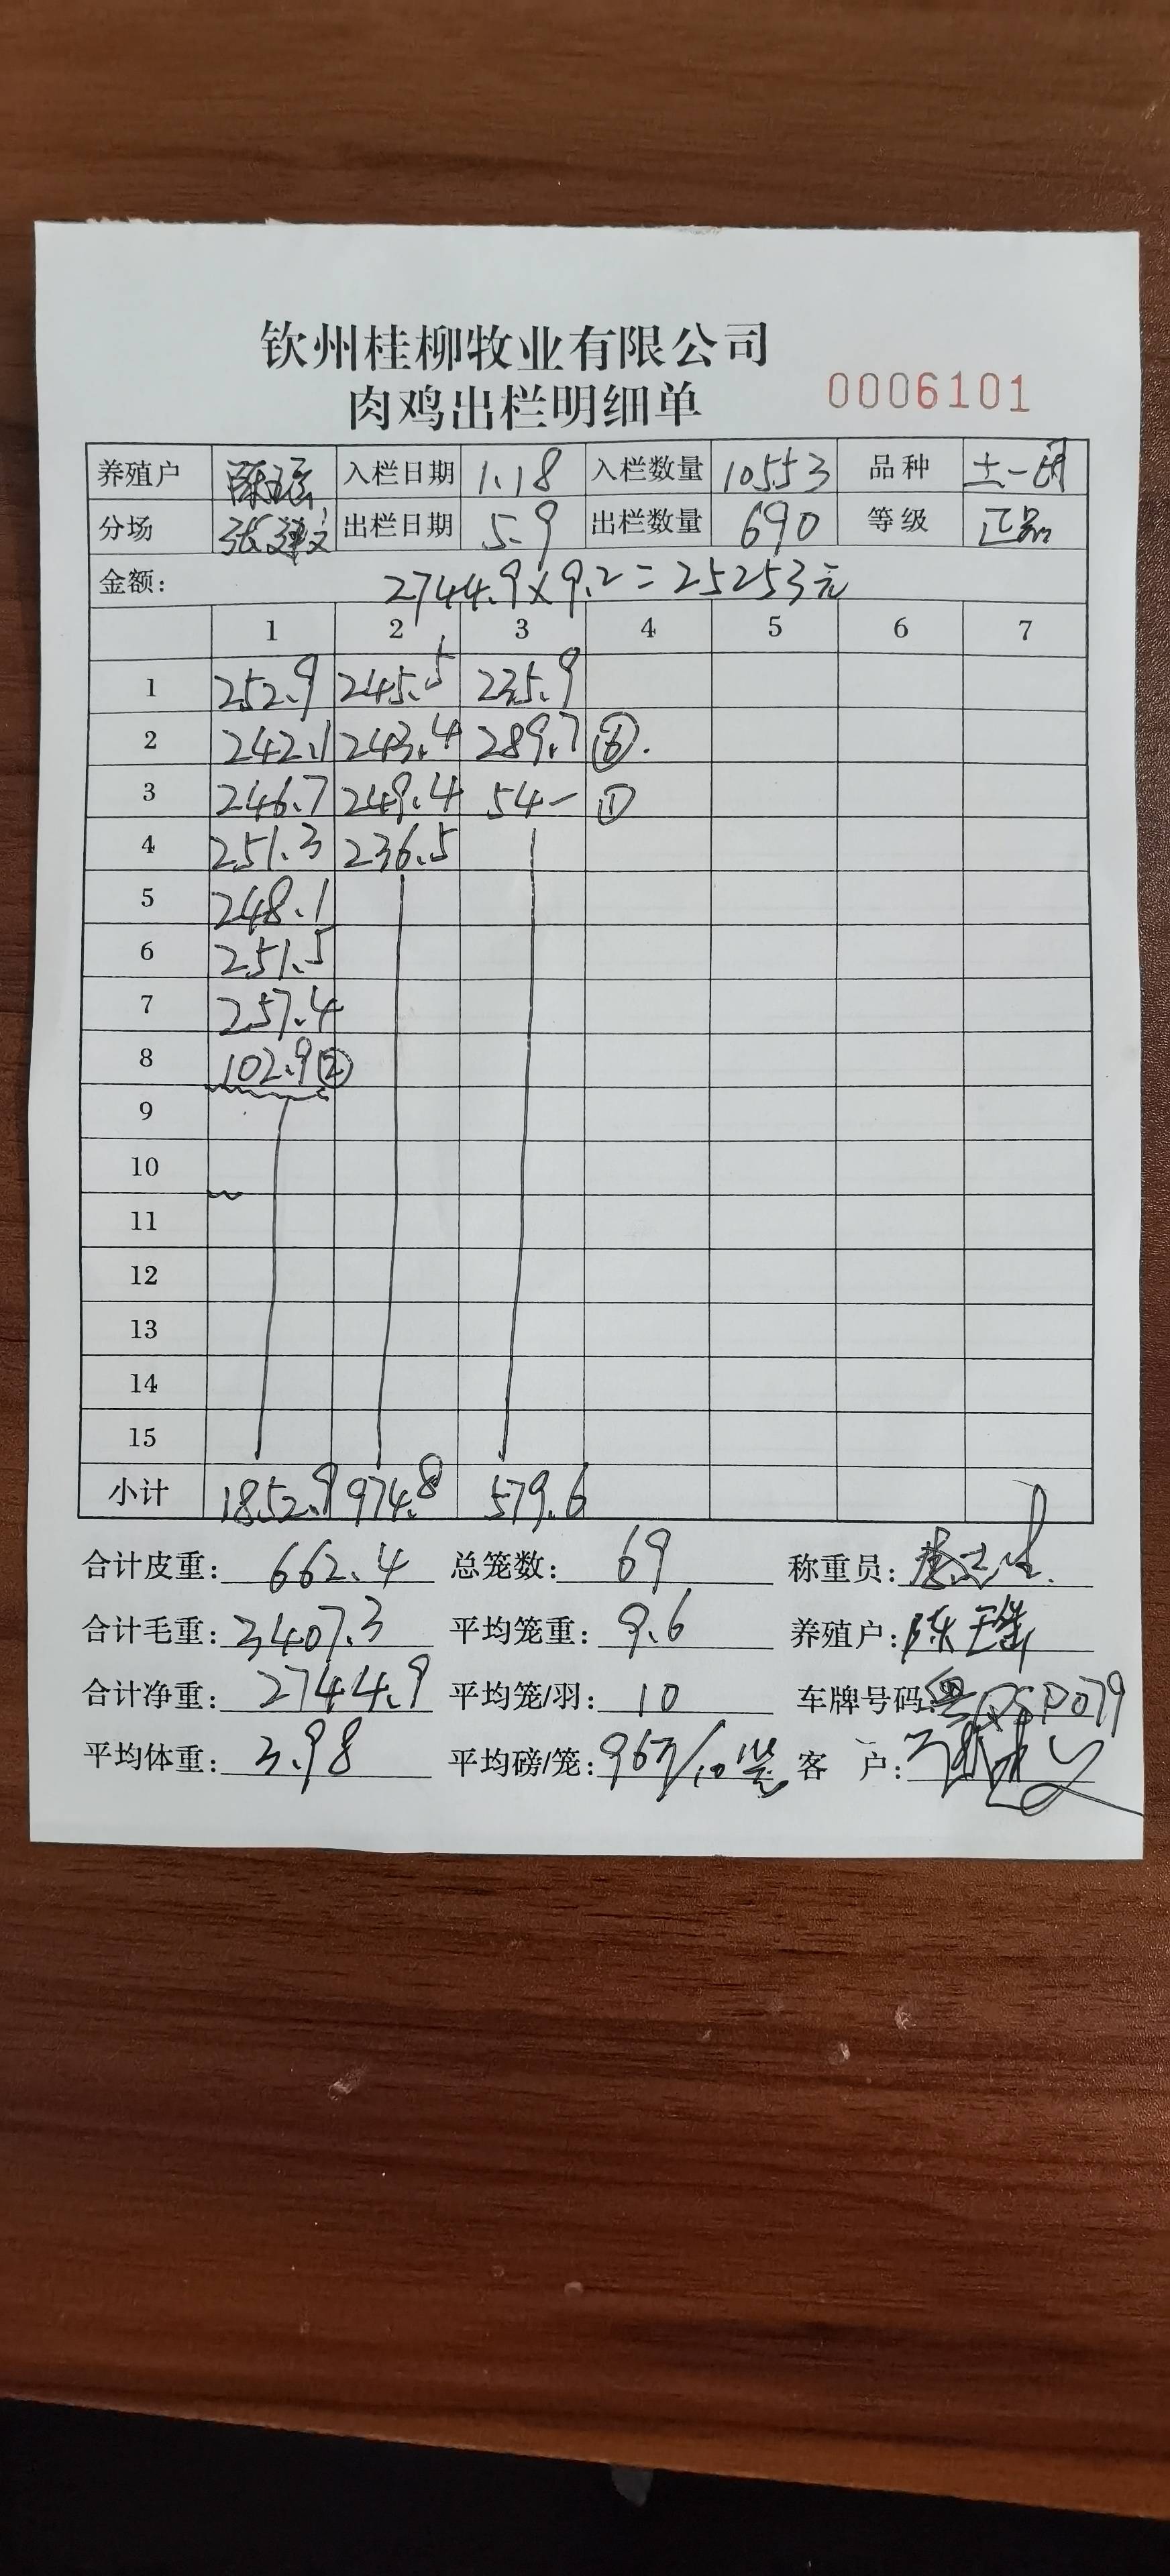 钦州桂柳牧业有限公司
肉鸡出栏明细单 0006101
养殖户 入栏日期 1.18 入栏数量 10553 品种 土一
分场 张建文 出栏日期 5.9 出栏数量 690 等级 正品
金额: 2744.9×9.2=25253元
1 2 3 4 5 6 7
1 252.9 245.5 235.9
2 242.1 243.4 289.7 ⑥.
3 246.7 249.4 54- ①
4 251.3 236.5
5 248.1
6 251.5
7 257.4
8 102.9 ②
9
10
11
12
13
14
15
小计 1852.9 974.8 579.6
合计皮重: 662.4 总笼数: 69 称重员:
合计毛重: 3407.3 平均笼重: 9.6 养殖户: 陈
合计净重: 2744.9 平均笼/羽: 10 车牌号码: 粤
平均体重: 3.98 平均磅/笼: 96斤/10笼 客 户: